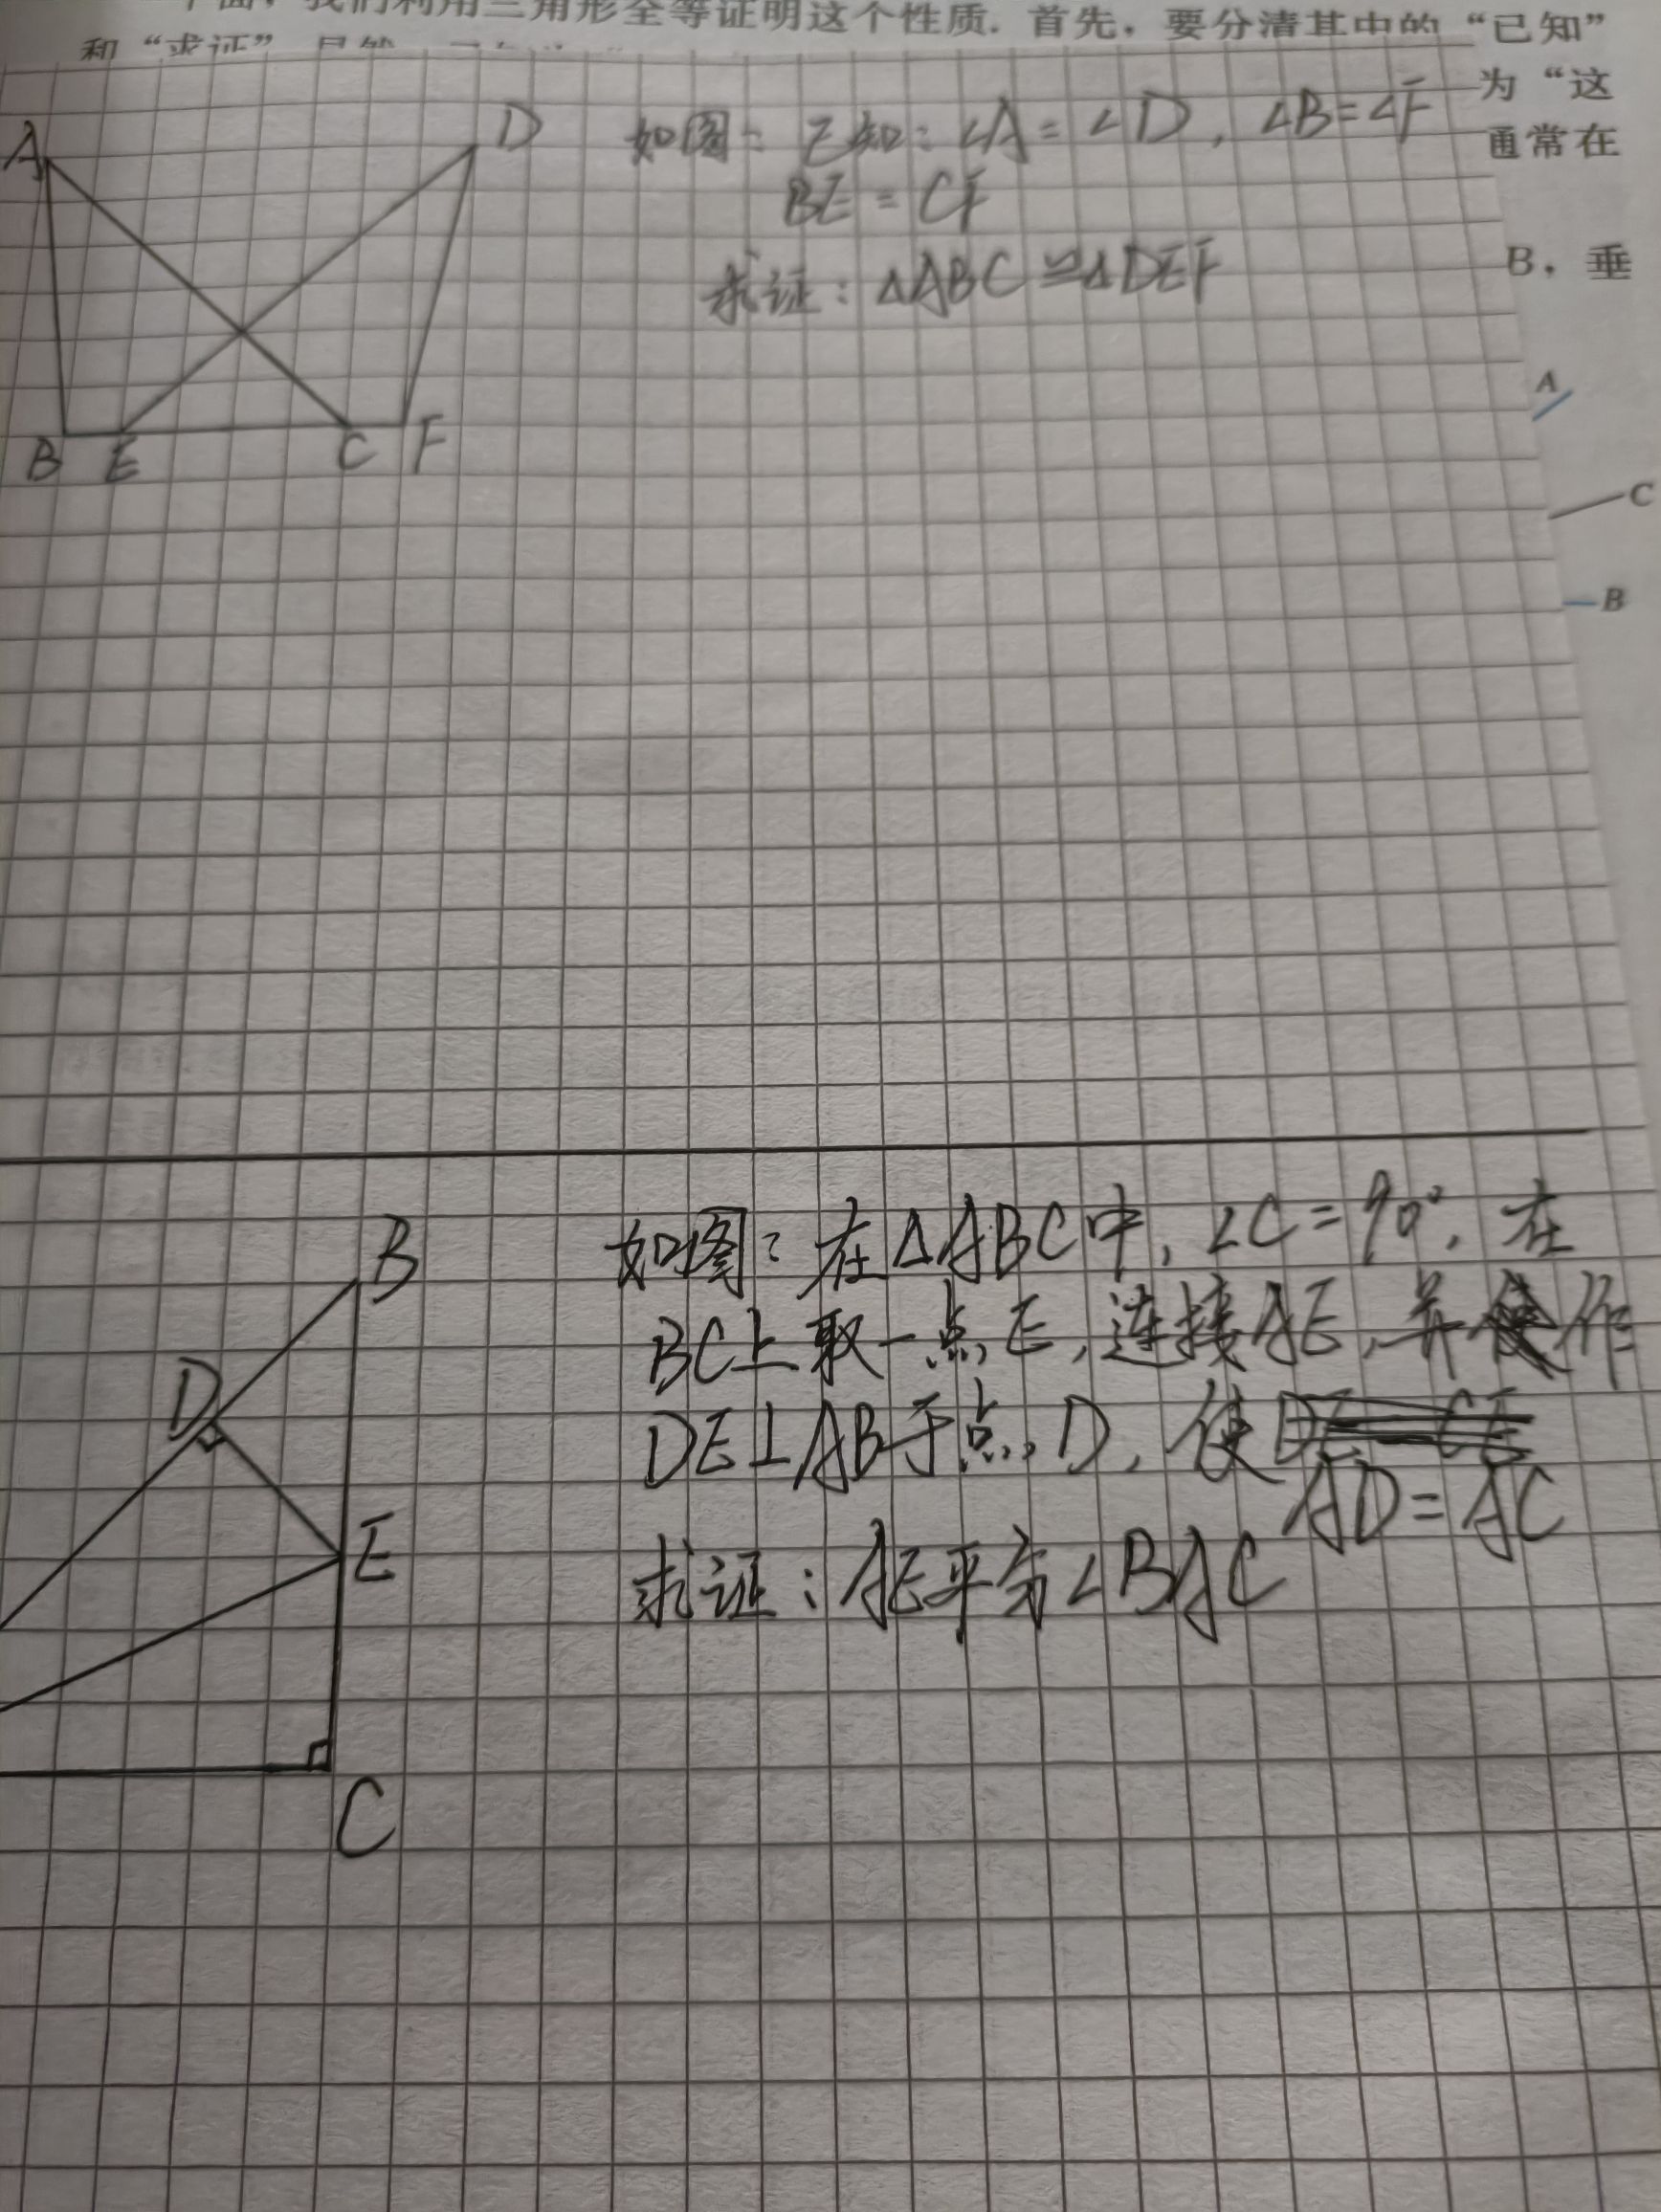 我们利用三角形全等证明这个性质．首先，要分清其中的“已知”
和“求证”
为“这
通常在
B，垂
A
C
B
A
D
B E C F
如图：已知：∠A=∠D，∠B=∠F
BE=CF
求证：△ABC≌△DEF
B
D
E
C
如图：在△ABC中，∠C=90°，在
BC上取一点E，连接AE，并作
DE⊥AB于点D，使
AD=AC
求证：AE平分∠BAC